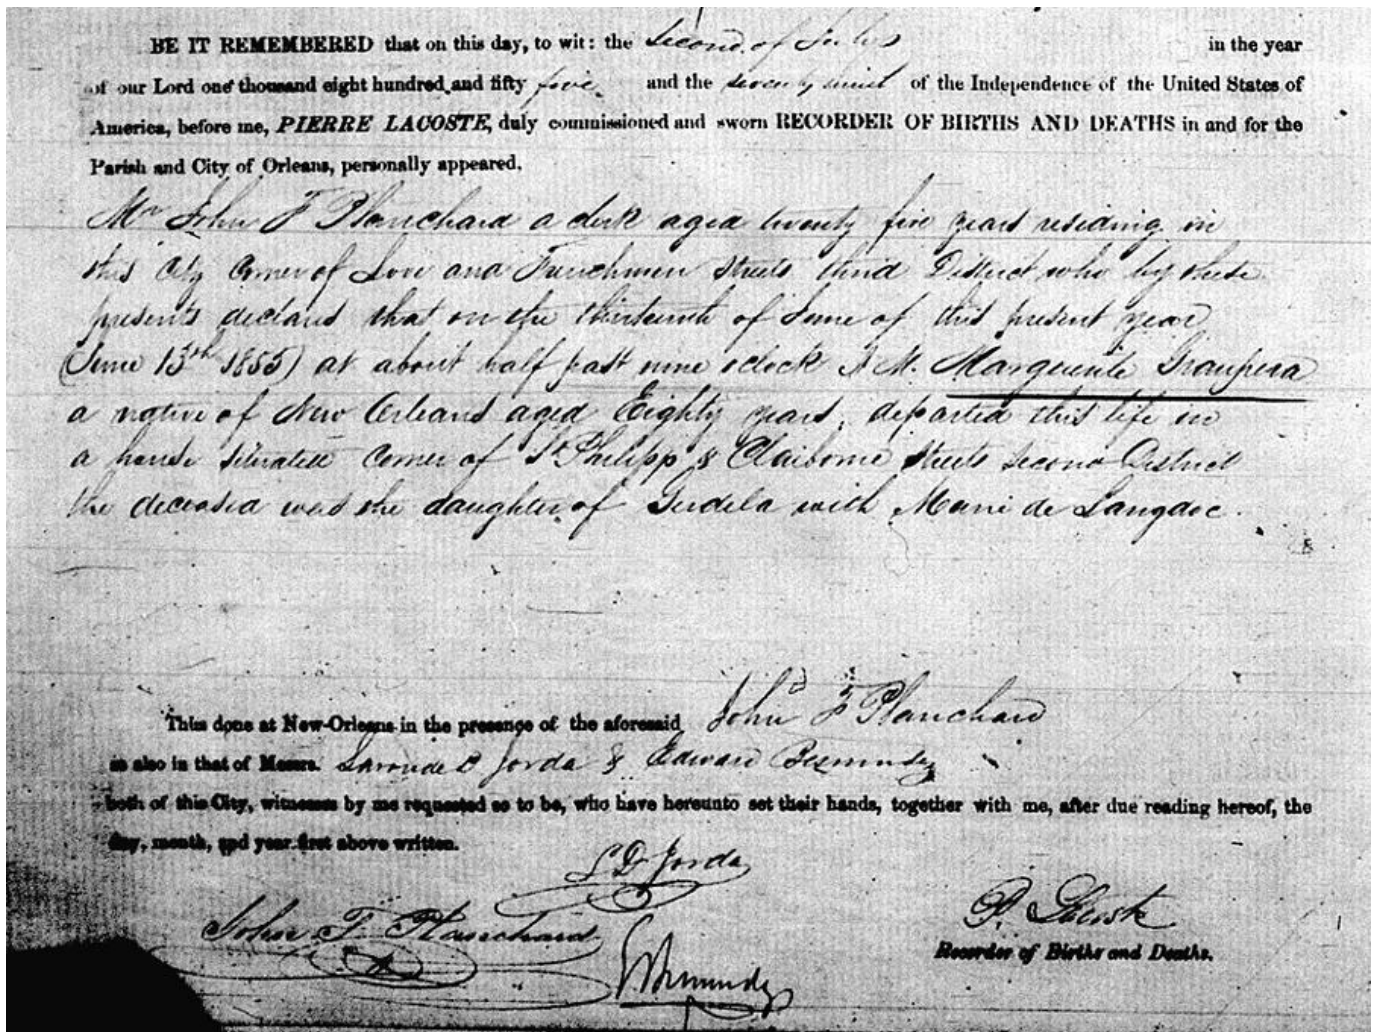 BE IT REMEMBERED that on this day, to wit: the Second of July in the year
of our Lord one thousand eight hundred and fifty five and the seventy ninth of the Independence of the United States of
America, before me, PIERRE LACOSTE, duly commissioned and sworn RECORDER OF BIRTHS AND DEATHS in and for the
Parish and City of Orleans, personally appeared.
Mr John F Planchard a clerk aged twenty five years residing in
this City Corner of Love and Frenchmen Streets third District who by these
presents declares that on the thirteenth of June of this present year
(June 13th 1855) at about half past nine oclock A M. Marguerite Graupera
a native of New Orleans aged Eighty years, departed this life in
a house situated Corner of St Philipp & Claiborne Streets second District
the deceased was the daughter of with Marie de Langdoc.
This done at New-Orleans in the presence of the aforesaid John F Planchard
as also in that of Messrs. Jorda & Edward Bermudez
both of this City, witnesses by me requested so to be, who have hereunto set their hands, together with me, after due reading hereof, the
day, month, and year first above written.
L D Jorda
John F. Planchard
P. Lacoste
Recorder of Births and Deaths.
E Bermudez